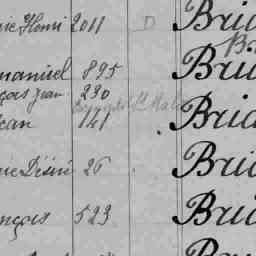 rie Henri 2011 D Brid
Br
manuel 895 Brid
çois Jean 230
ean 141 Brid
rie Désiré 26 Brid
nçois 523 Brid